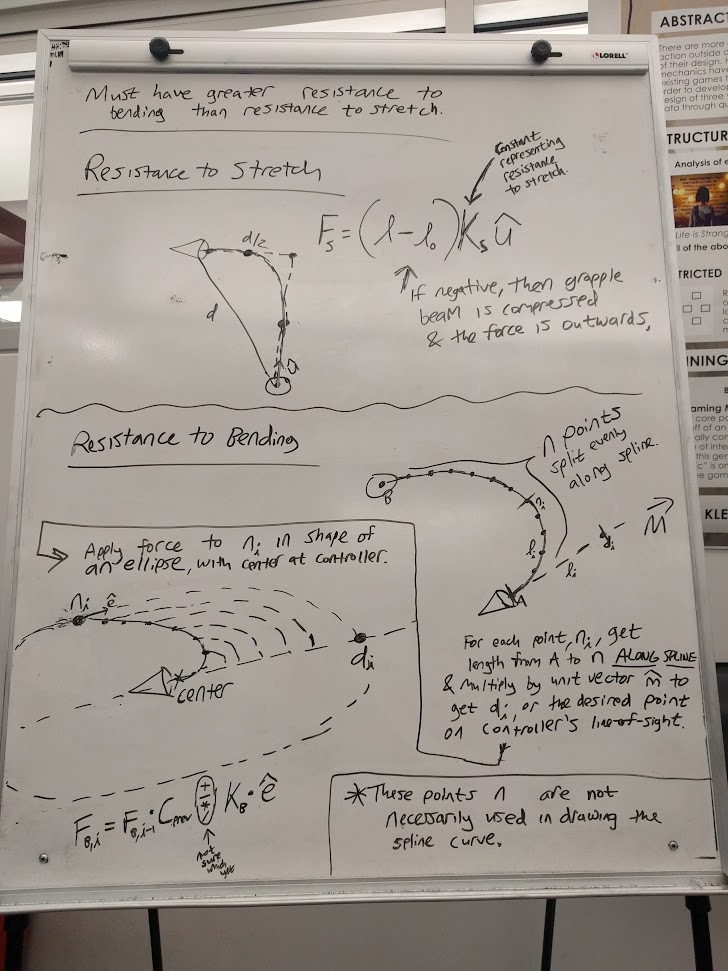 LORELL
Must have greater resistance to
bending than resistance to stretch.
Resistance to Stretch
Constant
representing
resistance
to stretch.
d/2
d
û
Fs = (l - l₀) Ks û
If negative, then grapple
beam is compressed
& the force is outwards.
Resistance to Bending
n points
split evenly
along spline.
B
nᵢ
lᵢ
A
lᵢ
dᵢ
M
Apply force to nᵢ in shape of
an ellipse, with center at controller.
nᵢ
ê
dᵢ
* center
For each point, nᵢ, get
length from A to n ALONG SPLINE
& multiply by unit vector m̂ to
get dᵢ, or the desired point
on controller's line-of-sight.
F_B,i = F_B,i-1 · C_prev + * K_B · ê
not
sure
which
yet
* These points n are not
necessarily used in drawing the
spline curve.
ABSTRAC
There are more
action outside o
of their design. H
mechanics have
existing games t
order to develo
esign of three v
ata through qu
TRUCTUR
Analysis of e
Life is Strang
ll of the abo
TRICTED
INING
aming M
core po
off of an
ally con
of inte
this gen
c" is on
e gam
KLE